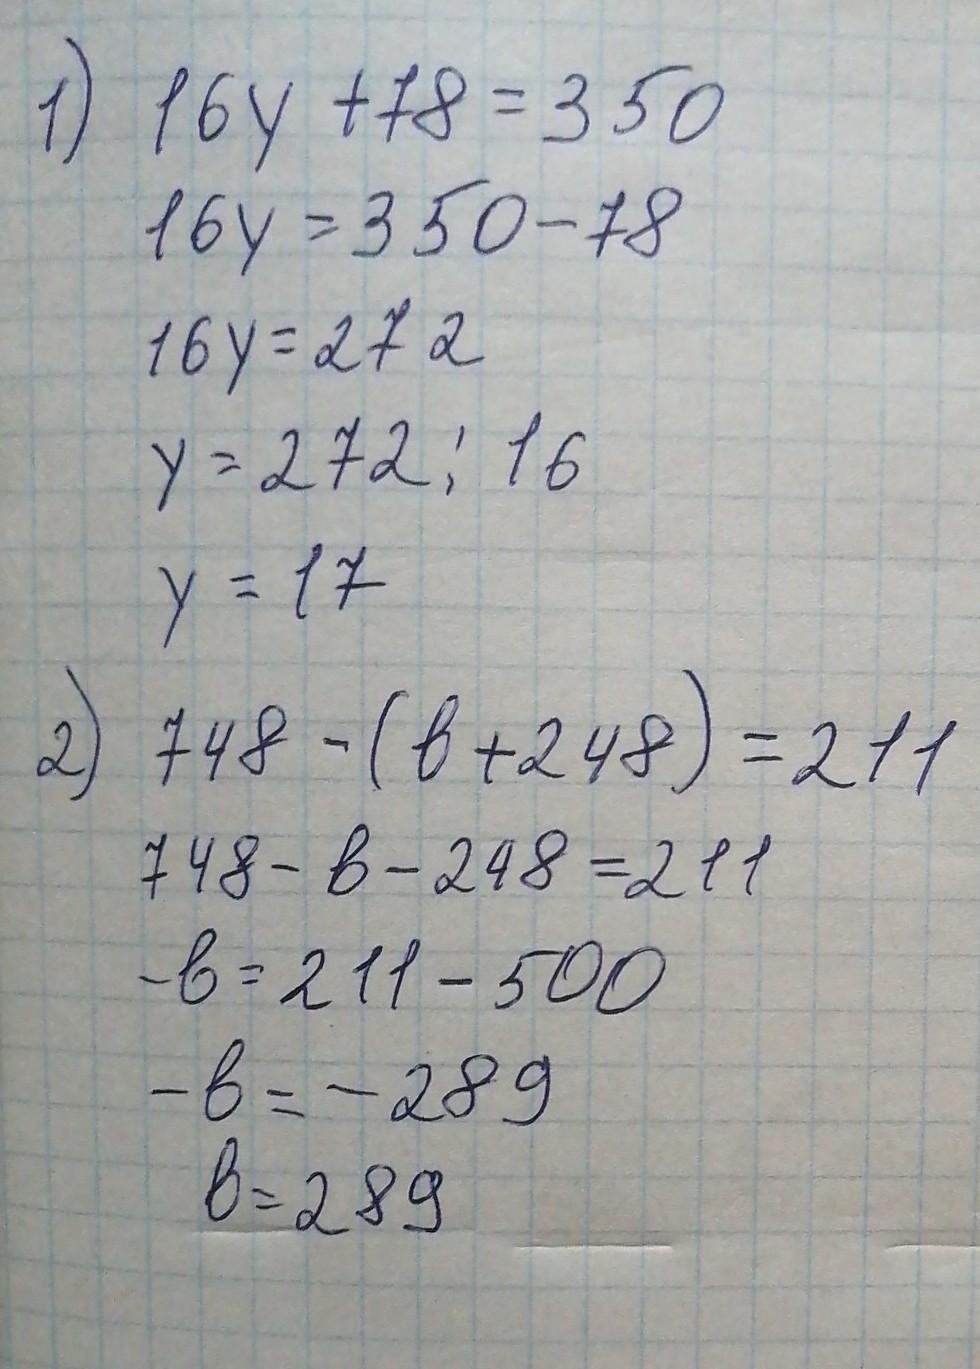 1) 16y + 78 = 350
16y = 350 - 78
16y = 272
y = 272 : 16
y = 17
2) 748 - (в + 248) = 211
748 - в - 248 = 211
-в = 211 - 500
-в = -289
в = 289